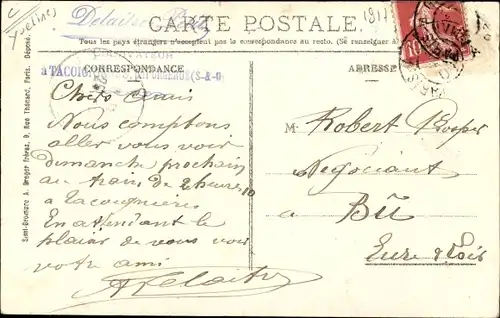 (Yvelines)
CARTE POSTALE
1917
Tous les pays étrangers n'acceptent pas la correspondance au recto. (Se renseigner à
CORRESPONDANCE
ADRESSE
à TACOIG
(S-&-O)
10
Chers amis
Nous comptons
aller vous voir
dimanche prochain
au train de 2 heures 10
à Tacoignières
En attendant le
plaisir de vous voir
votre ami
M. Robert
Négociant
à BÛ
Eure & Loir
Semi-Bromure A. Breger Frères, 9, Rue Thénard, Paris. Déposé.